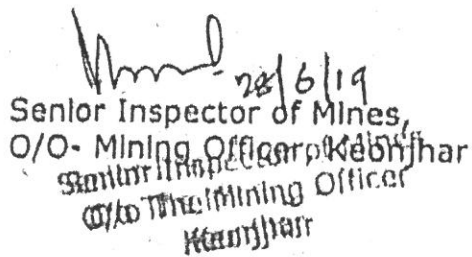 28/6/19
Senior Inspector of Mines,
O/O- Mining Officer, Keonjhar
Senior Inspector of Mines
O/o The Mining Officer
Keonjhar